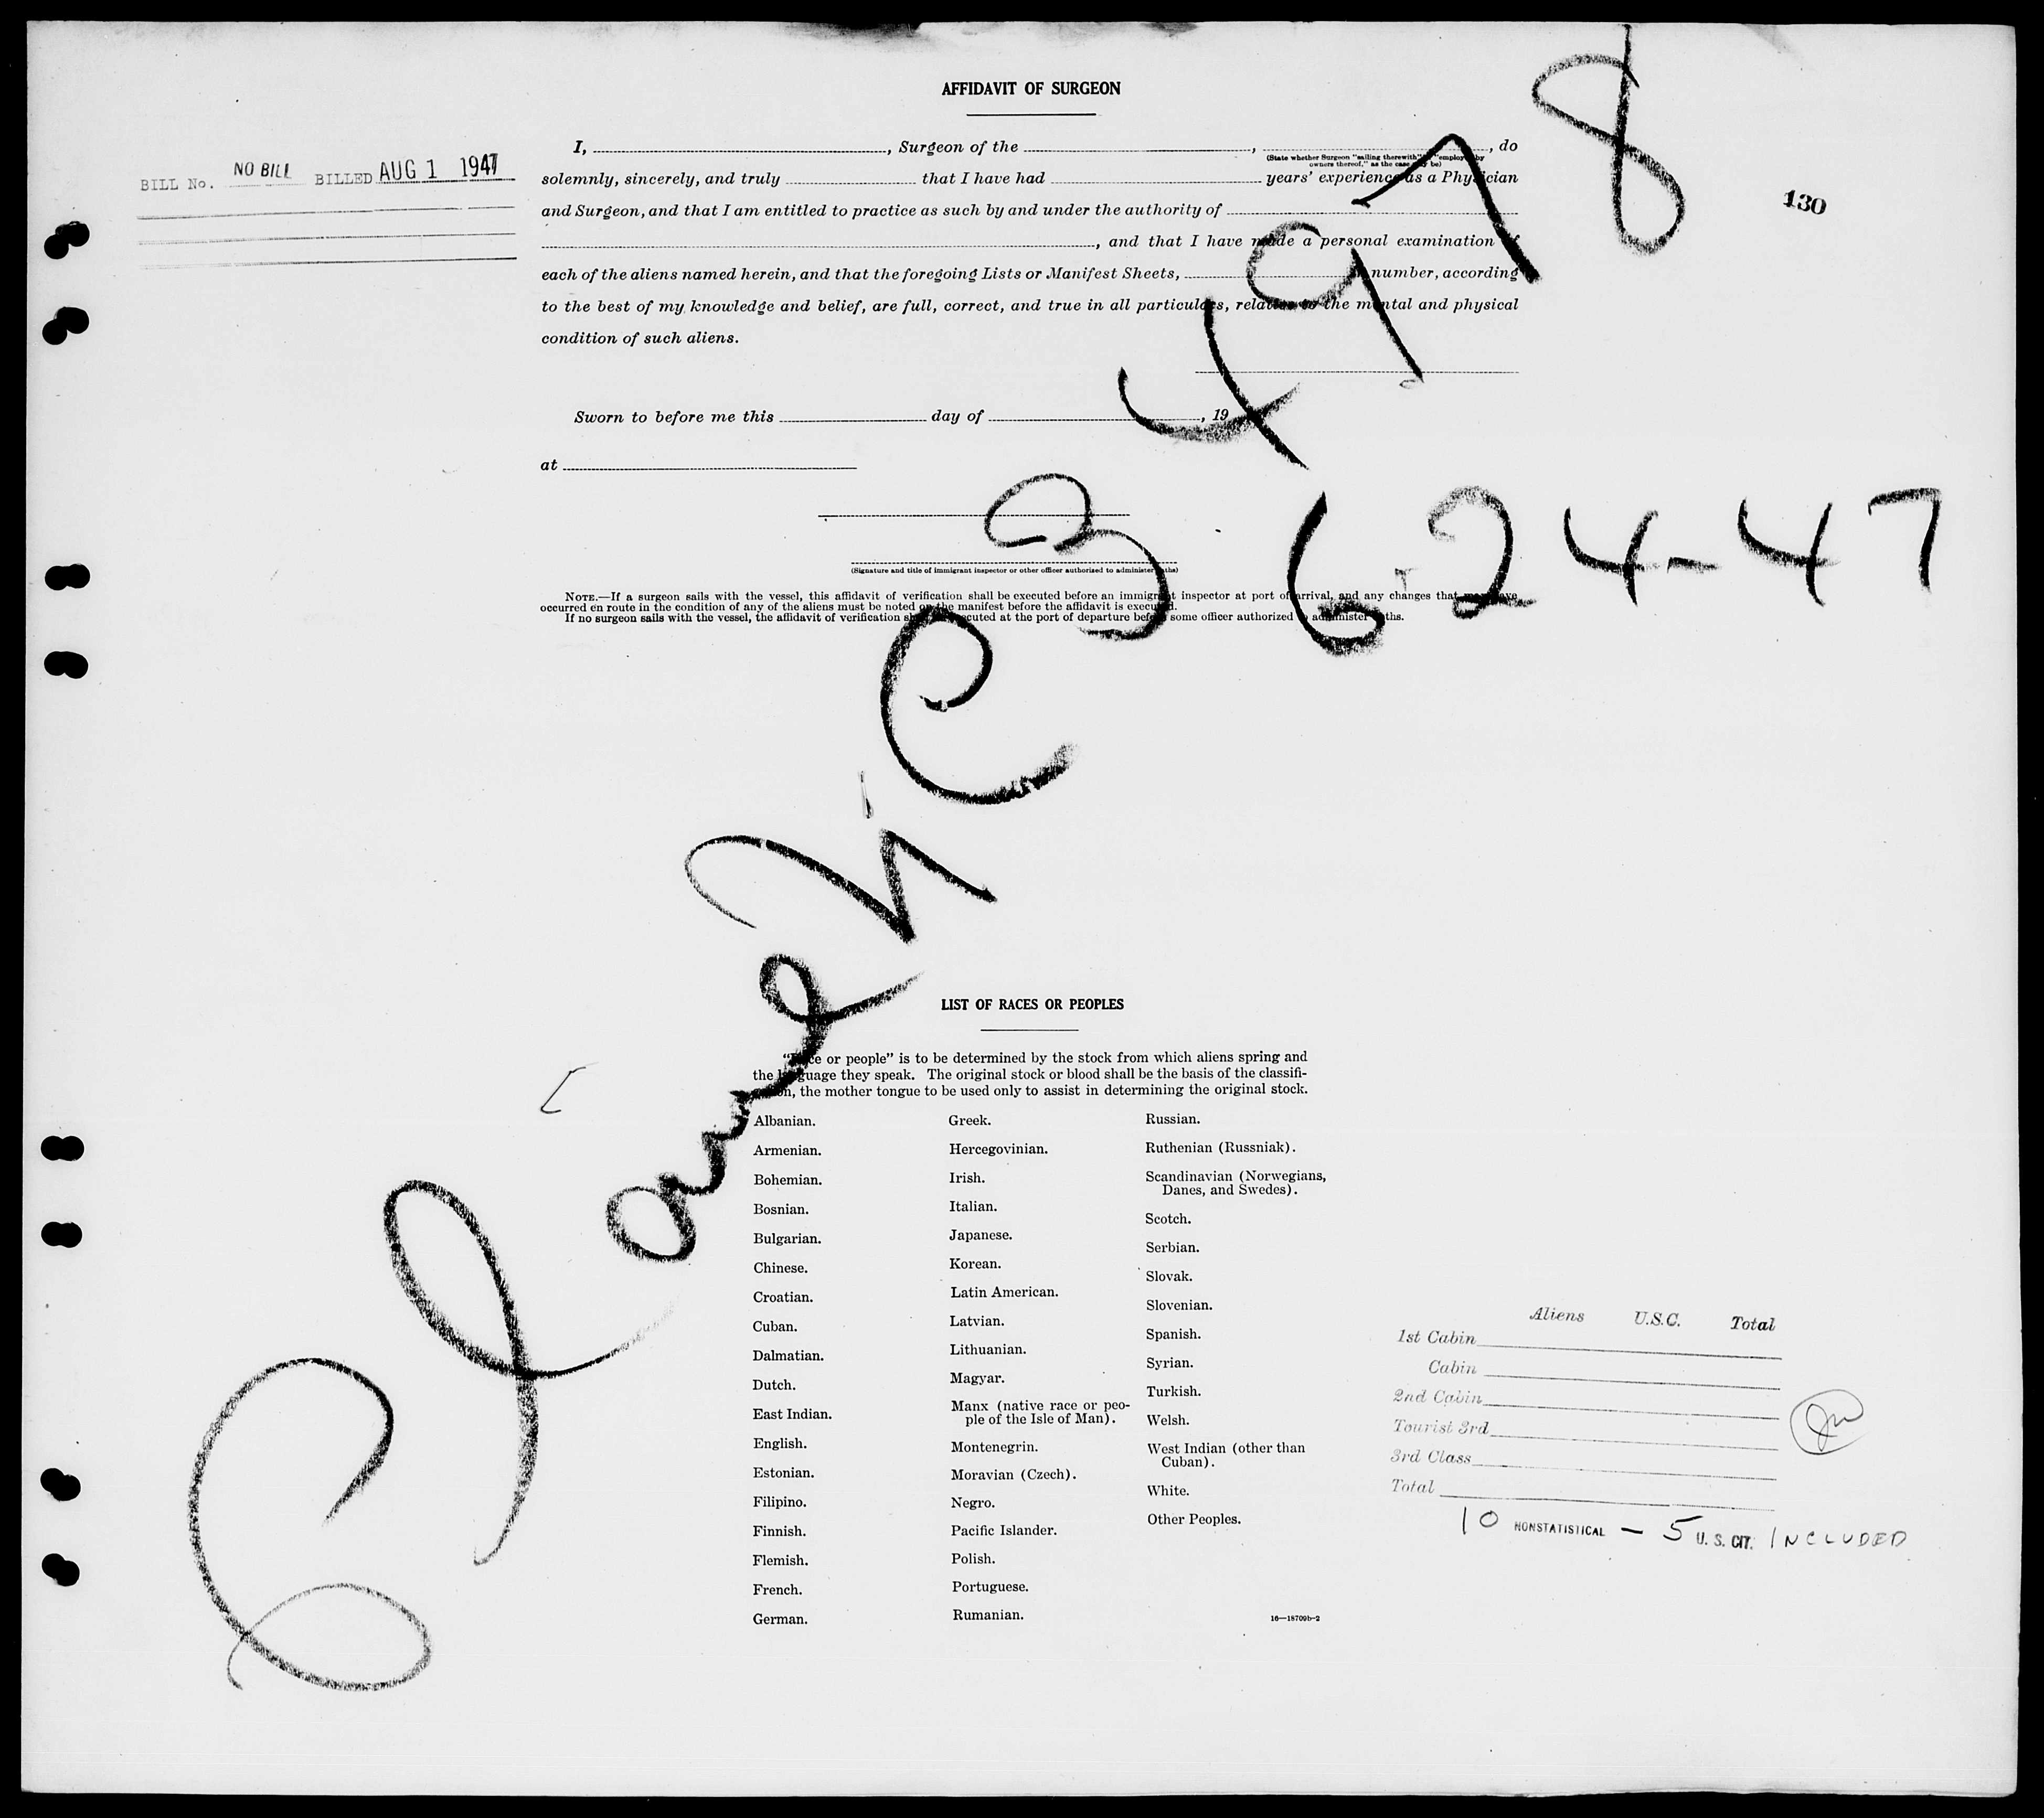 AFFIDAVIT OF SURGEON
BILL No. NO BILL BILLED AUG 1 1947
130
I, , Surgeon of the , , do
(State whether Surgeon "sailing therewith" "employed by owners thereof," as the case may be)
solemnly, sincerely, and truly that I have had years' experience as a Physician
and Surgeon, and that I am entitled to practice as such by and under the authority of
, and that I have made a personal examination of
each of the aliens named herein, and that the foregoing Lists or Manifest Sheets, number, according
to the best of my knowledge and belief, are full, correct, and true in all particulars, relative to the mental and physical
condition of such aliens.
Sworn to before me this day of , 19
at
(Signature and title of immigrant inspector or other officer authorized to administer oaths)
NOTE.—If a surgeon sails with the vessel, this affidavit of verification shall be executed before an immigrant inspector at port of arrival, and any changes that may have
occurred en route in the condition of any of the aliens must be noted on the manifest before the affidavit is executed.
If no surgeon sails with the vessel, the affidavit of verification shall be executed at the port of departure before some officer authorized to administer oaths.
34978
6-24-47
LIST OF RACES OR PEOPLES
"Race or people" is to be determined by the stock from which aliens spring and
the language they speak. The original stock or blood shall be the basis of the classifi-
cation, the mother tongue to be used only to assist in determining the original stock.
Albanian.
Armenian.
Bohemian.
Bosnian.
Bulgarian.
Chinese.
Croatian.
Cuban.
Dalmatian.
Dutch.
East Indian.
English.
Estonian.
Filipino.
Finnish.
Flemish.
French.
German.
Greek.
Hercegovinian.
Irish.
Italian.
Japanese.
Korean.
Latin American.
Latvian.
Lithuanian.
Magyar.
Manx (native race or peo-
ple of the Isle of Man).
Montenegrin.
Moravian (Czech).
Negro.
Pacific Islander.
Polish.
Portuguese.
Rumanian.
Russian.
Ruthenian (Russniak).
Scandinavian (Norwegians,
Danes, and Swedes).
Scotch.
Serbian.
Slovak.
Slovenian.
Spanish.
Syrian.
Turkish.
Welsh.
West Indian (other than
Cuban).
White.
Other Peoples.
16—18709b-2
Aliens U.S.C. Total
1st Cabin
Cabin
2nd Cabin
Tourist 3rd
3rd Class
Total
10 NONSTATISTICAL — 5 U. S. CIT. INCLUDED